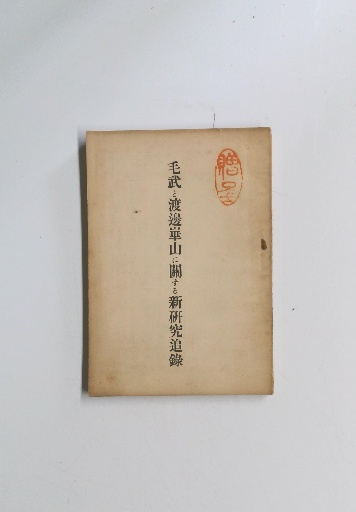 毛武と渡邊崋山に關する新研究追錄
贈呈